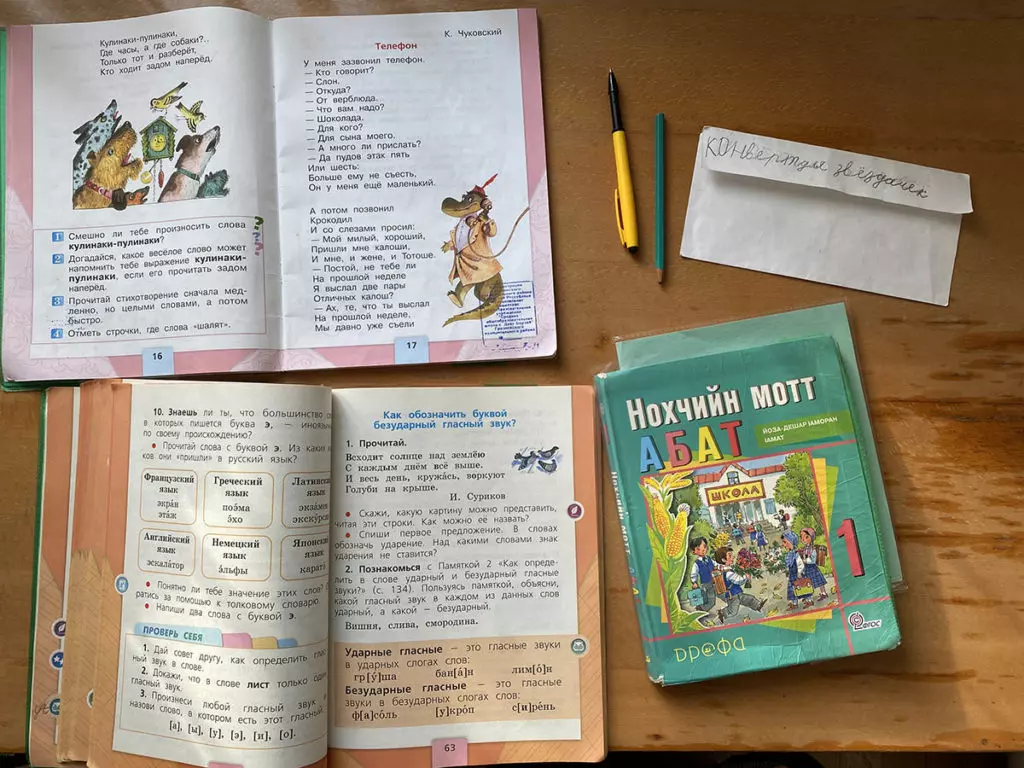 Кулинаки-пулинаки,
Где часы, а где собаки?..
Только тот и разберёт,
Кто ходит задом наперёд.
1 Смешно ли тебе произносить слова
кулинаки-пулинаки?
2 Догадайся, какое весёлое слово может
напомнить тебе выражение кулинаки-
пулинаки, если его прочитать задом
наперёд.
3 Прочитай стихотворение сначала мед-
ленно, но целыми словами, а потом
быстро.
4 Отметь строчки, где слова “шалят”.
16
К. Чуковский
Телефон
У меня зазвонил телефон.
— Кто говорит?
— Слон.
— Откуда?
— От верблюда.
— Что вам надо?
— Шоколада.
— Для кого?
— Для сына моего.
— А много ли прислать?
— Да пудов этак пять
Или шесть:
Больше ему не съесть,
Он у меня ещё маленький.
А потом позвонил
Крокодил
И со слезами просил:
— Мой милый, хороший,
Пришли мне калоши,
И мне, и жене, и Тотоше.
— Постой, не тебе ли
На прошлой неделе
Я выслал две пары
Отличных калош?
— Ах, те, что ты выслал
На прошлой неделе,
Мы давно уже съели
17
Конверт для звёздочек
10. Знаешь ли ты, что большинство
в которых пишется буква э, — иноязы
по своему происхождению?
• Прочитай слова с буквой э. Из каки
ков они «пришли» в русский язык?
Французский
язык
экра́н
эта́ж
Греческий
язык
поэ́ма
э́хо
Латинск
язык
экза́ме
экску́рс
Английский
язык
эскала́тор
Немецкий
язык
э́льфы
Японск
язык
карат
• Понятно ли тебе значение этих слов?
ратись за помощью к толковому словарю.
• Напиши два слова с буквой э.
ПРОВЕРЬ СЕБЯ
1. Дай совет другу, как определить глас
ный звук в слове.
2. Докажи, что в слове лист только один
гласный звук.
3. Произнеси любой гласный звук
назови слово, в котором есть этот гласный.
[а], [ы], [у], [э], [и], [о].
Как обозначить буквой
безударный гласный звук?
1. Прочитай.
Всходит солнце над землёю
С каждым днём всё выше.
И весь день, кружась, воркуют
Голуби на крыше.
И. Суриков
• Скажи, какую картину можно представить,
читая эти строки. Как можно её назвать?
• Спиши первое предложение. В словах
обозначь ударение. Над какими словами знак
ударения не ставится?
2. Познакомься с Памяткой 2 «Как опреде-
лить в слове ударный и безударный гласные
звуки?» (с. 134). Пользуясь памяткой, объясни,
какой гласный звук в каждом из данных слов
ударный, а какой — безударный.
Вишня, слива, смородина.
Ударные гласные — это гласные звуки
в ударных слогах слов:
гр[у́]ша бан[а́]н лим[о́]н
Безударные гласные — это гласные
звуки в безударных слогах слов:
ф[а]со́ль [у]кро́п с[и]ре́нь
63
НОХЧИЙН МОТТ
АБАТ
ЙОЗА-ДЕШАР IАМОРАН
IАМАТ
ШКОЛА
1
ФГОС
дрофа